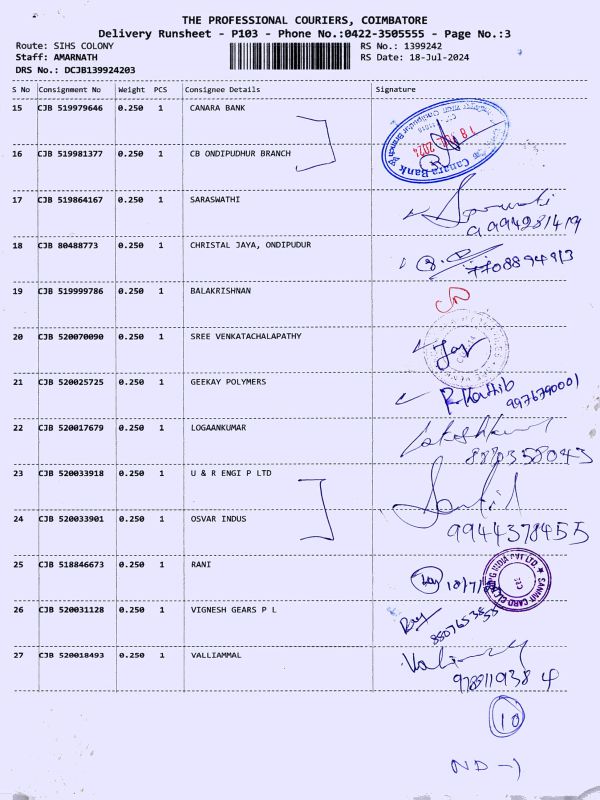 THE PROFESSIONAL COURIERS, COIMBATORE
Delivery Runsheet - P103 - Phone No.:0422-3505555 - Page No.:3
Route: SIHS COLONY
Staff: AMARNATH
DRS No.: DCJB139924203
RS No.: 1399242
RS Date: 18-Jul-2024
S No Consignment No Weight PCS Consignee Details Signature
15 CJB 519979646 0.250 1 CANARA BANK
16 CJB 519981377 0.250 1 CB ONDIPUDHUR BRANCH
17 CJB 519864167 0.250 1 SARASWATHI
18 CJB 80488773 0.250 1 CHRISTAL JAYA, ONDIPUDUR
19 CJB 519999786 0.250 1 BALAKRISHNAN
20 CJB 520070090 0.250 1 SREE VENKATACHALAPATHY
21 CJB 520025725 0.250 1 GEEKAY POLYMERS
9976790001
22 CJB 520017679 0.250 1 LOGAANKUMAR
23 CJB 520033918 0.250 1 U & R ENGI P LTD
24 CJB 520033901 0.250 1 OSVAR INDUS
9944378455
25 CJB 518846673 0.250 1 RANI
26 CJB 520031128 0.250 1 VIGNESH GEARS P L
27 CJB 520018493 0.250 1 VALLIAMMAL
10
ND -1